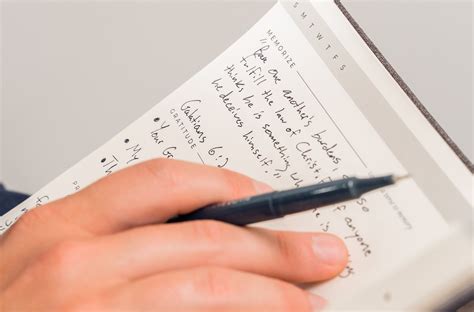 S M T W T F S
MEMORIZE
"Bear One another's burdens, so
fulfill the law of Christ. if anyone
thinks he is something he is
he deceives himself."
Galatians 6:2
to memory
GRATITUDE
• Your
• My